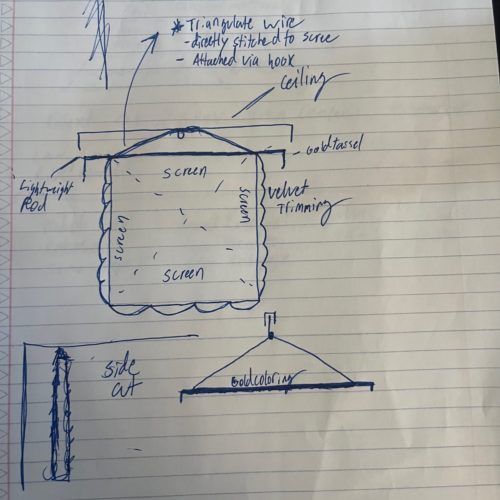 * Triangulate wire
- directly stitched to scree
- Attached via hook
ceiling
Goldtassel
screen
Lightweight
Rod
screen
screen
velvet
Trimming
screen
side
cut
Goldcoloring